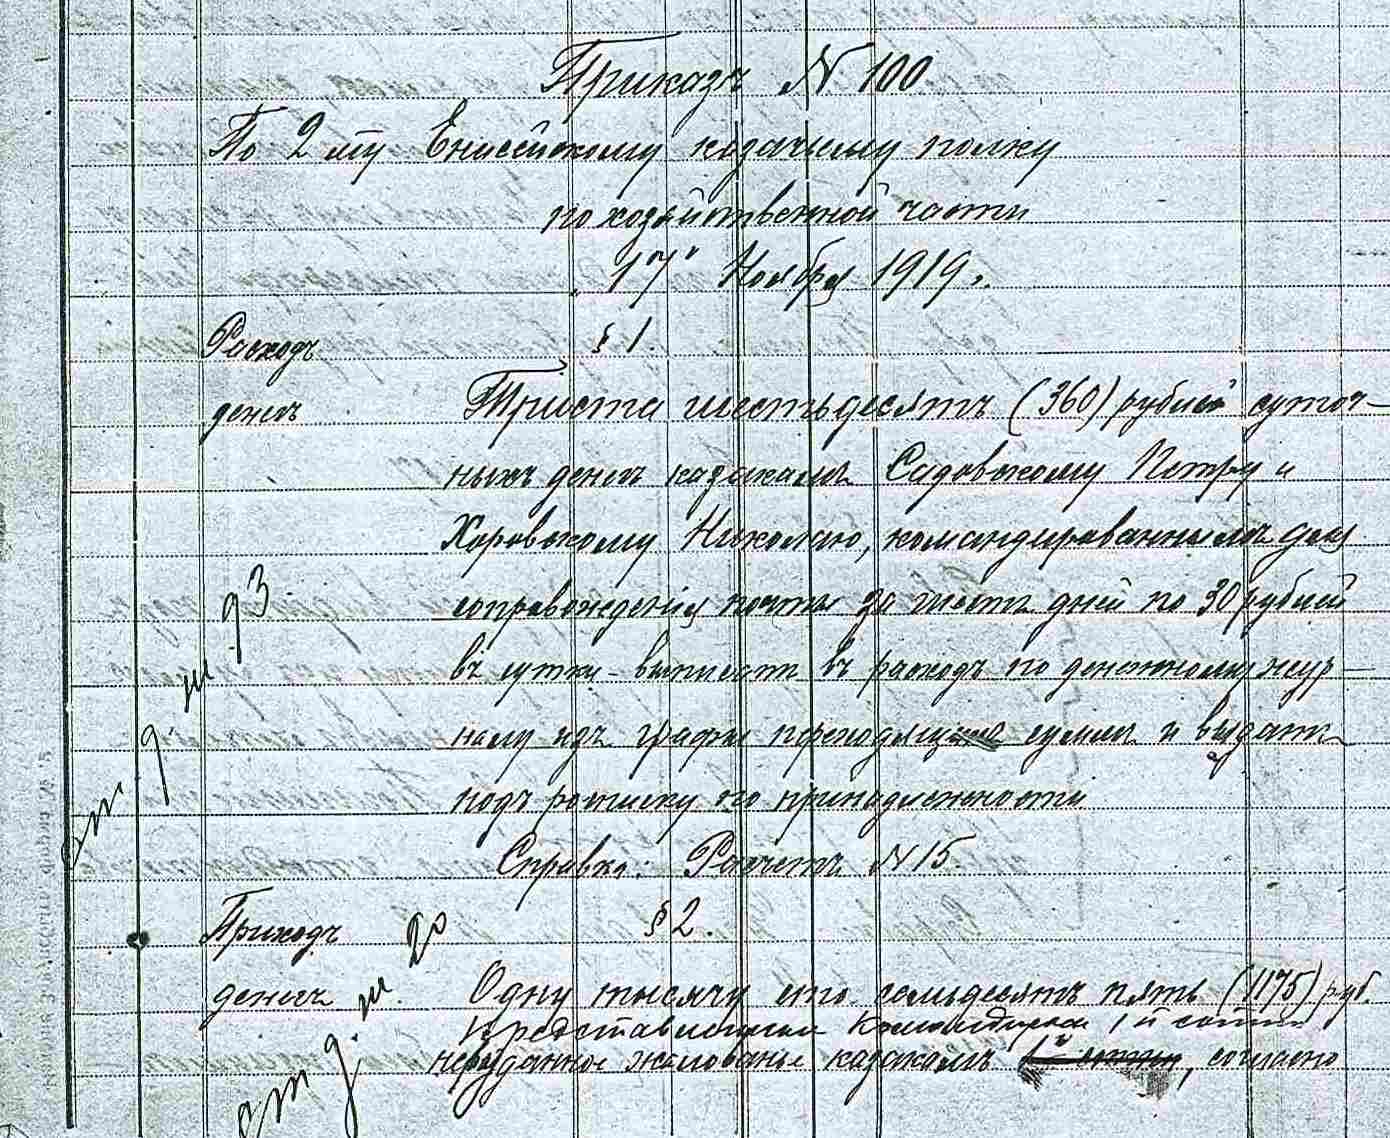 Приказъ № 100
По 2му Енисейскому казачьему полку
по хозяйственной части
"17" Ноября 1919г.
Расходъ § 1.
денегъ Триста шестьдесятъ (360) рублей суточ-
ныхъ денегъ казакамъ Садовскому Петру и
Харовскому Николаю, командированнымъ для
сопровожденія почты за шесть дней по 30 рублей
въ сутки - выписать въ расходъ по денежному жур-
налу изъ графы переходящія суммъ и выдать
подъ росписку по принадлежности
Справка: Расчетъ № 15.
ст. д. ж. 93
Приходъ § 2.
денегъ Одну тысячу сто семьдесятъ пять (1175) руб.
представленныя Командиромъ 1й сотни
невыданное жалованье казакамъ 1й сотни, согласно
ст. д. ж. 20